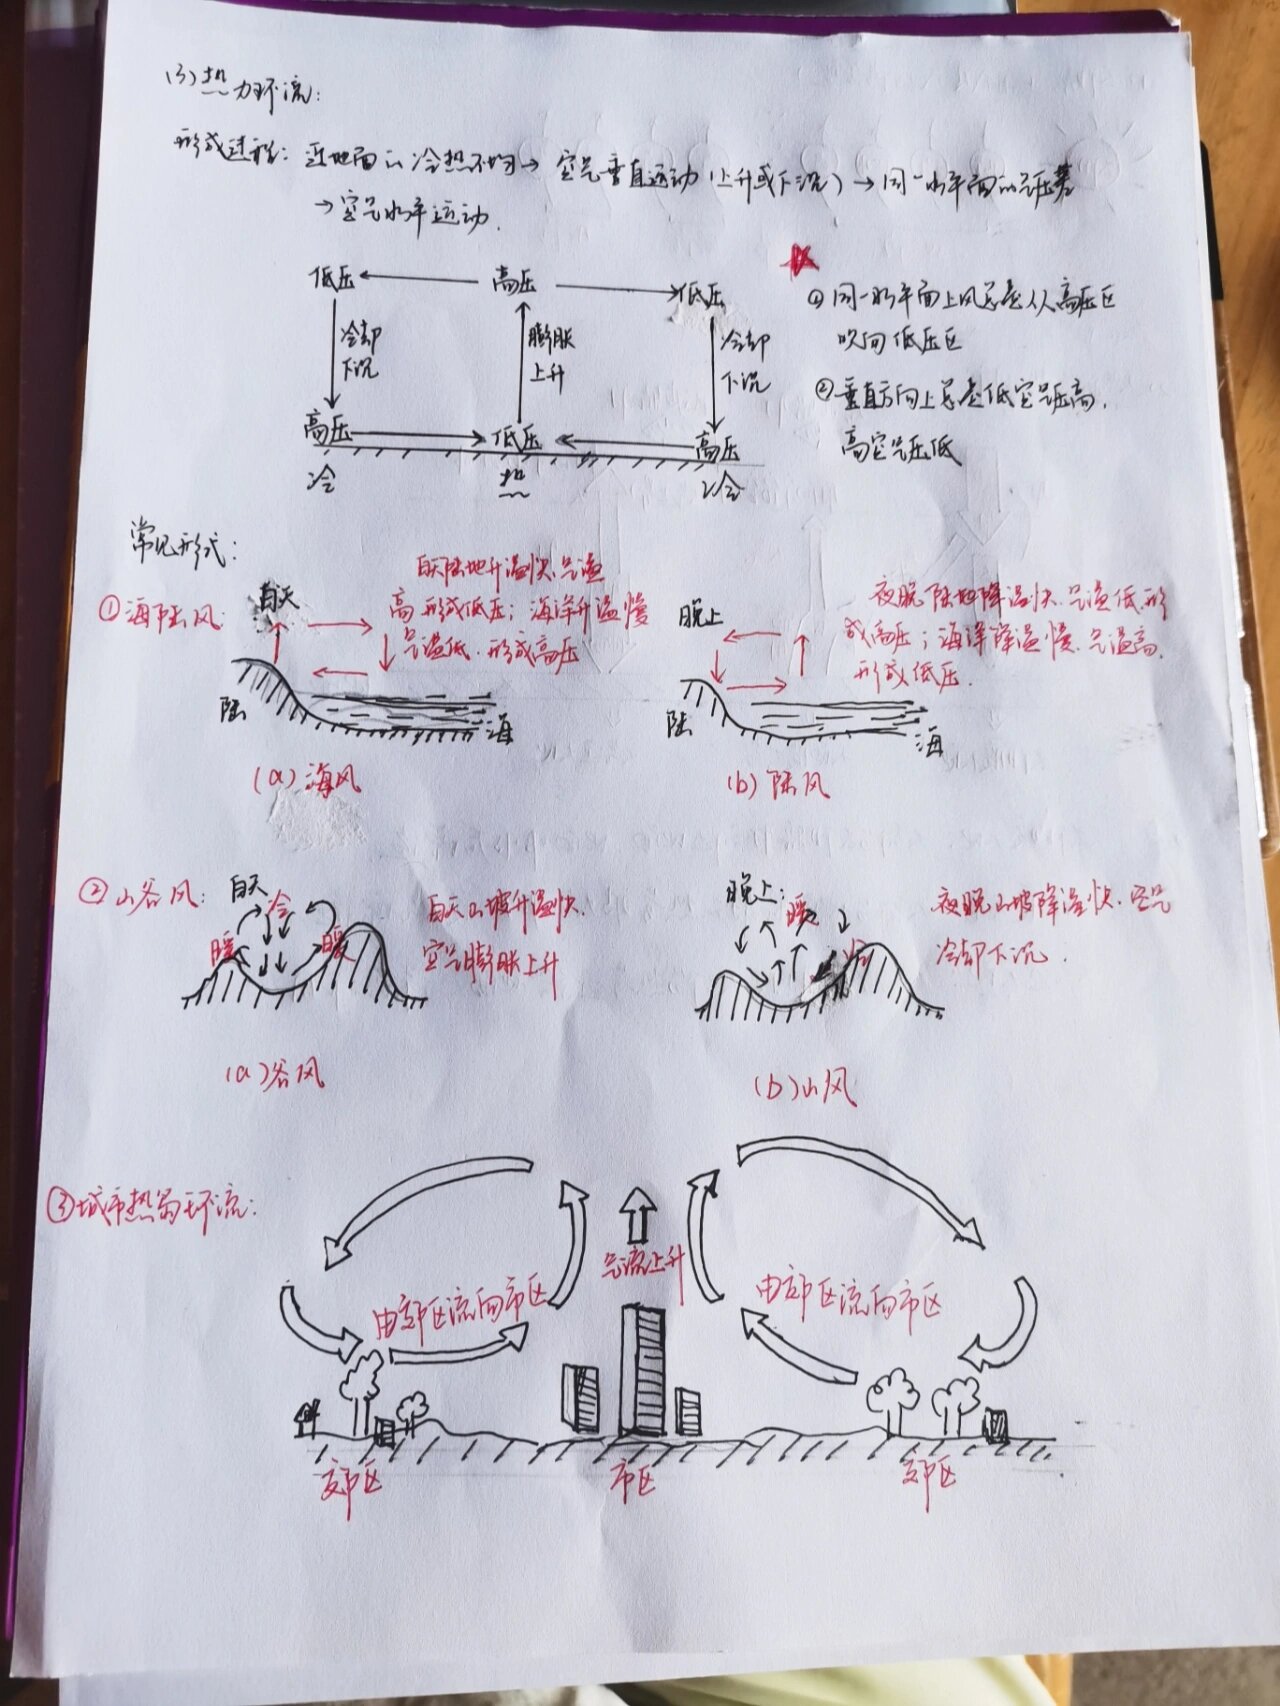 (3) 热力环流:
形成过程: 近地面的冷热不均→ 空气垂直运动 (上升或下沉) → 同一水平面的气压差
→ 空气水平运动.
低压 高压 低压
冷却 下沉
膨胀 上升
冷却 下沉
高压 低压 高压
冷 热 冷
① 同一水平面上风总是从高压区
吹向低压区
② 垂直方向上总是低空气压高,
高空气压低
常见形式:
① 海陆风:
白天
白天陆地升温快,气温
高,形成低压; 海洋升温慢
气温低,形成高压
陆 海
(a) 海风
晚上
夜晚陆地降温快,气温低,形
成高压; 海洋降温慢,气温高,
形成低压.
陆 海
(b) 陆风
② 山谷风:
白天
冷
暖 暖
白天山坡升温快,
空气膨胀上升
(a) 谷风
晚上:
暖
冷
夜晚山坡降温快,空气
冷却下沉.
(b) 山风
③ 城市热岛环流:
气流上升
由郊区流向市区
由郊区流向市区
郊区 市区 郊区